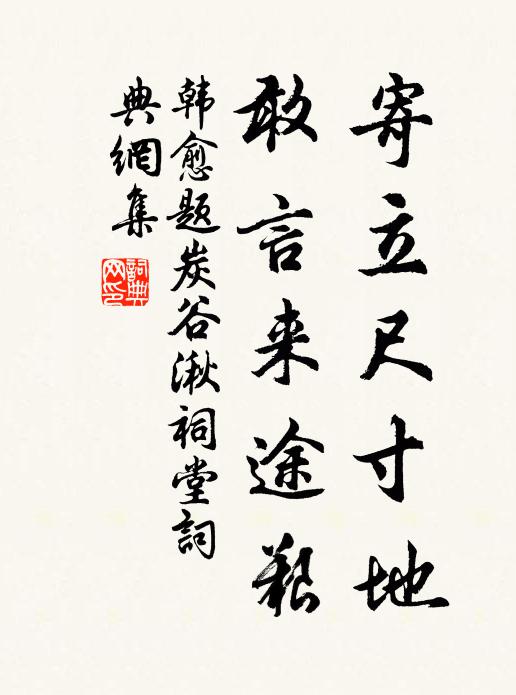 寄立尺寸地
敢言来途艱
韩愈题炭谷湫祠堂詞
典網集
詞典
网印